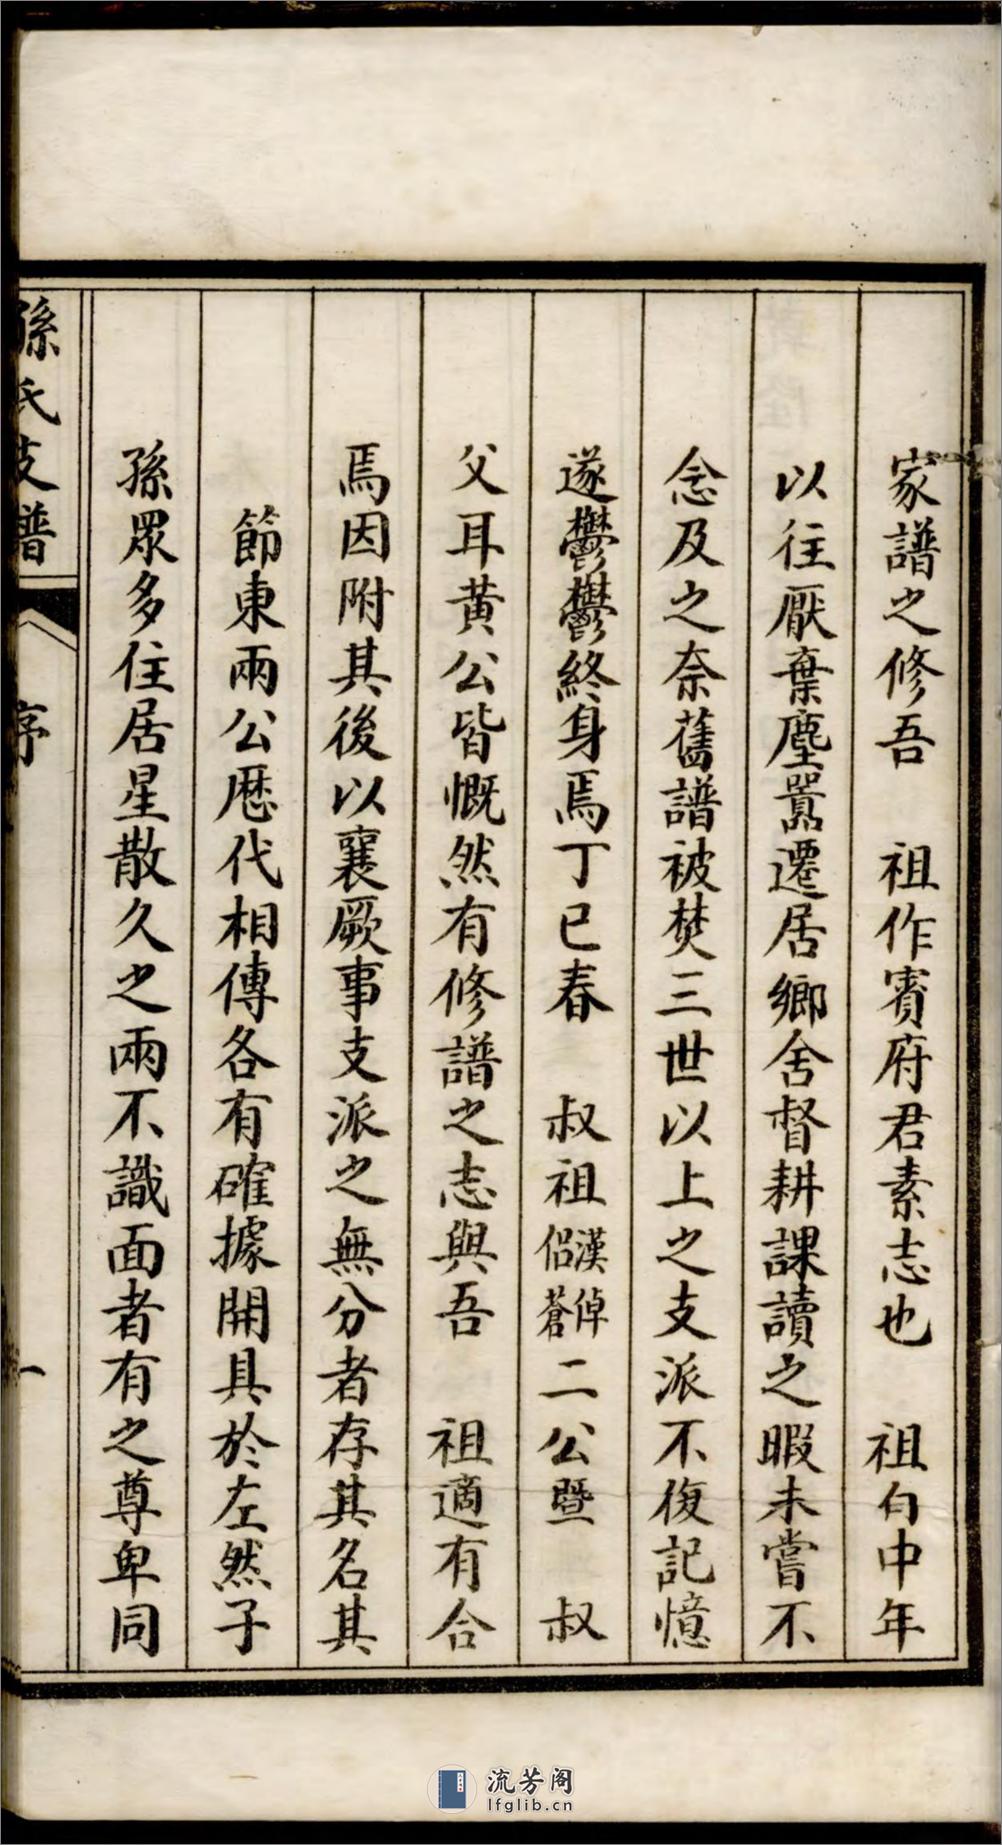 家譜之修吾　祖作賓府君素志也　祖自中年
以往厭棄塵囂遷居鄉舍督耕課讀之暇未嘗不
念及之奈舊譜被焚三世以上之支派不復記憶
遂鬱鬱終身焉丁巳春　叔祖漢倬侶蒼二公暨　叔
父耳黃公皆慨然有修譜之志與吾　祖適有合
焉因附其後以襄厥事支派之無分者存其名其
節東兩公歷代相傳各有確據開具於左然子
孫眾多住居星散久之兩不識面者有之尊卑同
孫氏支譜
序
一
流芳阁
lfglib.cn